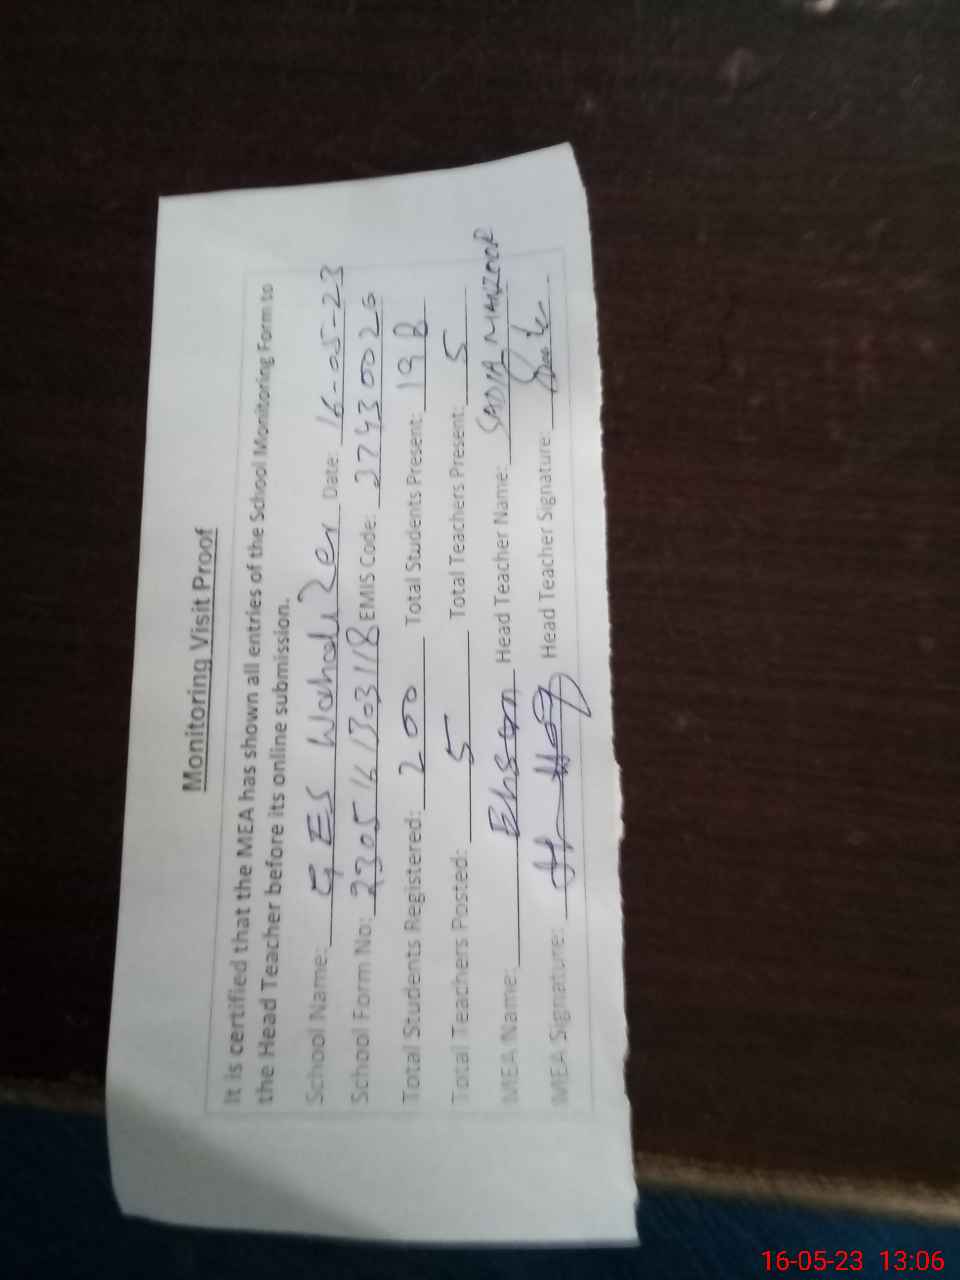 Monitoring Visit Proof
It is certified that the MEA has shown all entries of the School Monitoring Form to
the Head Teacher before its online submission.
School Name: GES Date: 16-05-23
School Form No: 2305161303118 EMIS Code: 37430026
Total Students Registered: 200 Total Students Present: 198
Total Teachers Posted: 5 Total Teachers Present: 5
MEA Name: Ehsan Head Teacher Name: SADIA MANZOOR
MEA Signature: Head Teacher Signature:
16-05-23 13:06